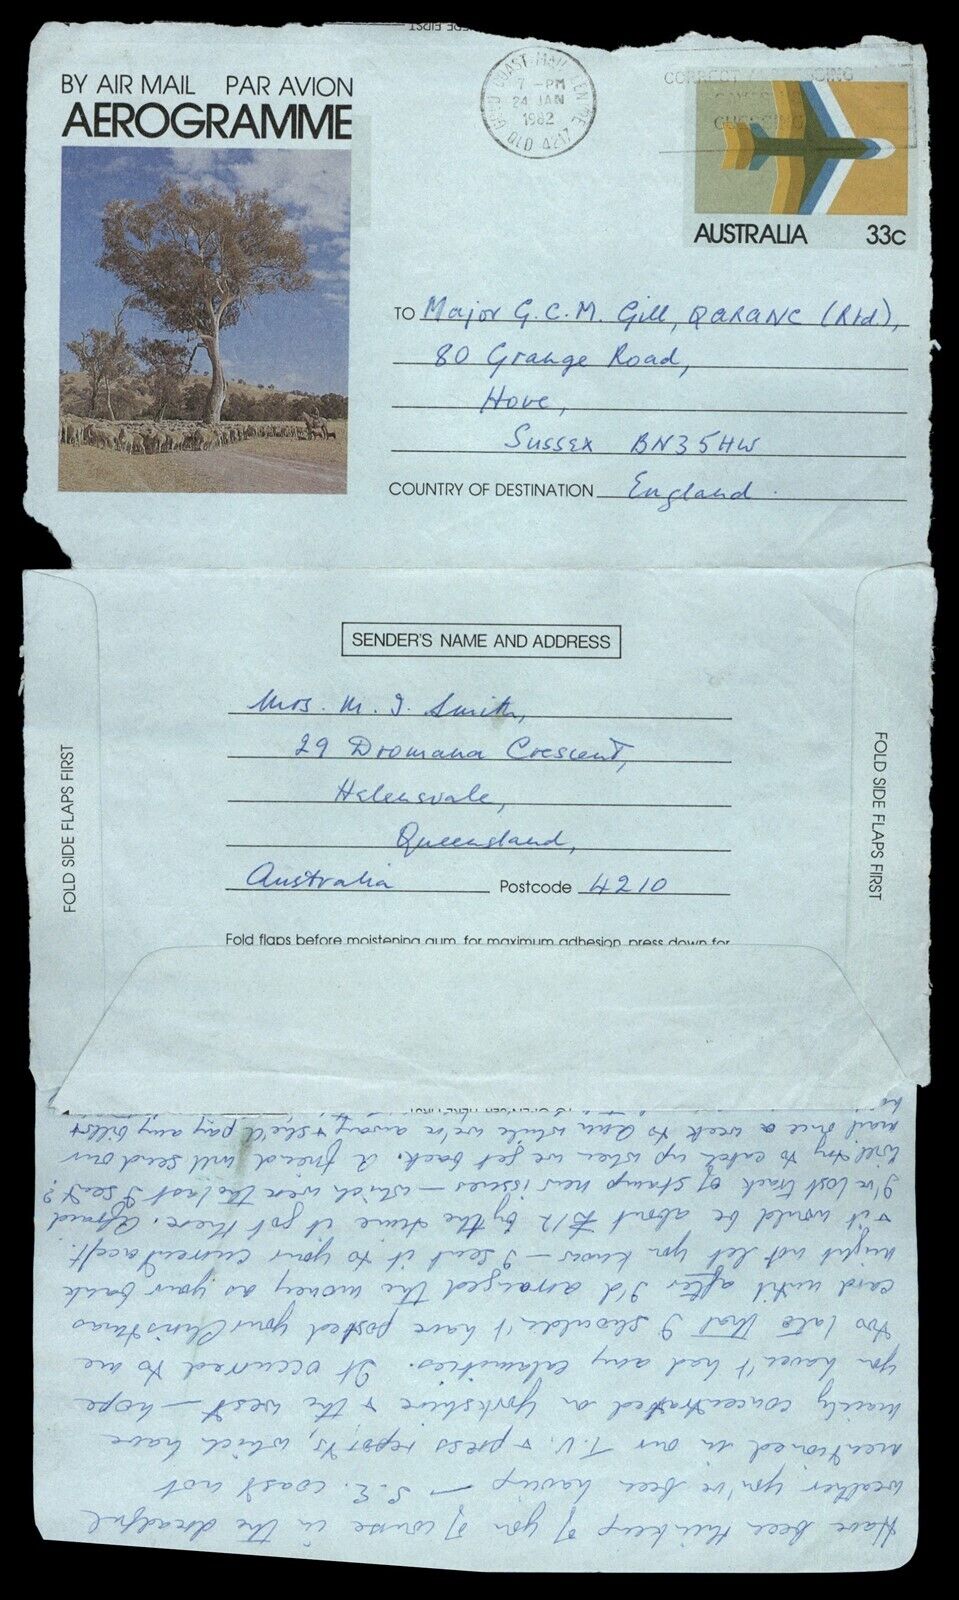 BY AIR MAIL PAR AVION
AEROGRAMME
GOLD COAST MAIL CENTRE
7 - PM
24 JAN
1982
QLD 4217
CORRECT
AUSTRALIA 33c
TO Major G.C.M. Gill, QARANC (Rtd),
80 Grange Road,
Hove,
Sussex BN35HW
COUNTRY OF DESTINATION England.
SENDER'S NAME AND ADDRESS
Mrs. M. J. Smith,
29 Dromana Crescent,
Helensvale,
Queensland,
Australia Postcode 4210
FOLD SIDE FLAPS FIRST
FOLD SIDE FLAPS FIRST
Fold flaps before moistening gum, for maximum adhesion, press down for
Have been thinking of you of course in the dreadful
weather you've been having – S.E. coast not
mentioned in our T.V. & press reports, which have
mainly concentrated on Yorkshire & the west – hope
you haven't had any calamities. It occurred to me
too late that I shouldn't have posted your Christmas
card until after I'd arranged the money as your bank
might not let you know – I sent it to your current acct.
& it would be about £12 by the time it got there. Afraid
I've lost track of stamp new issues – which were the last I sent?
Will try to catch up when we get back. A friend will send our
mail once a week to Ann while we're away & she'll pay any bills &